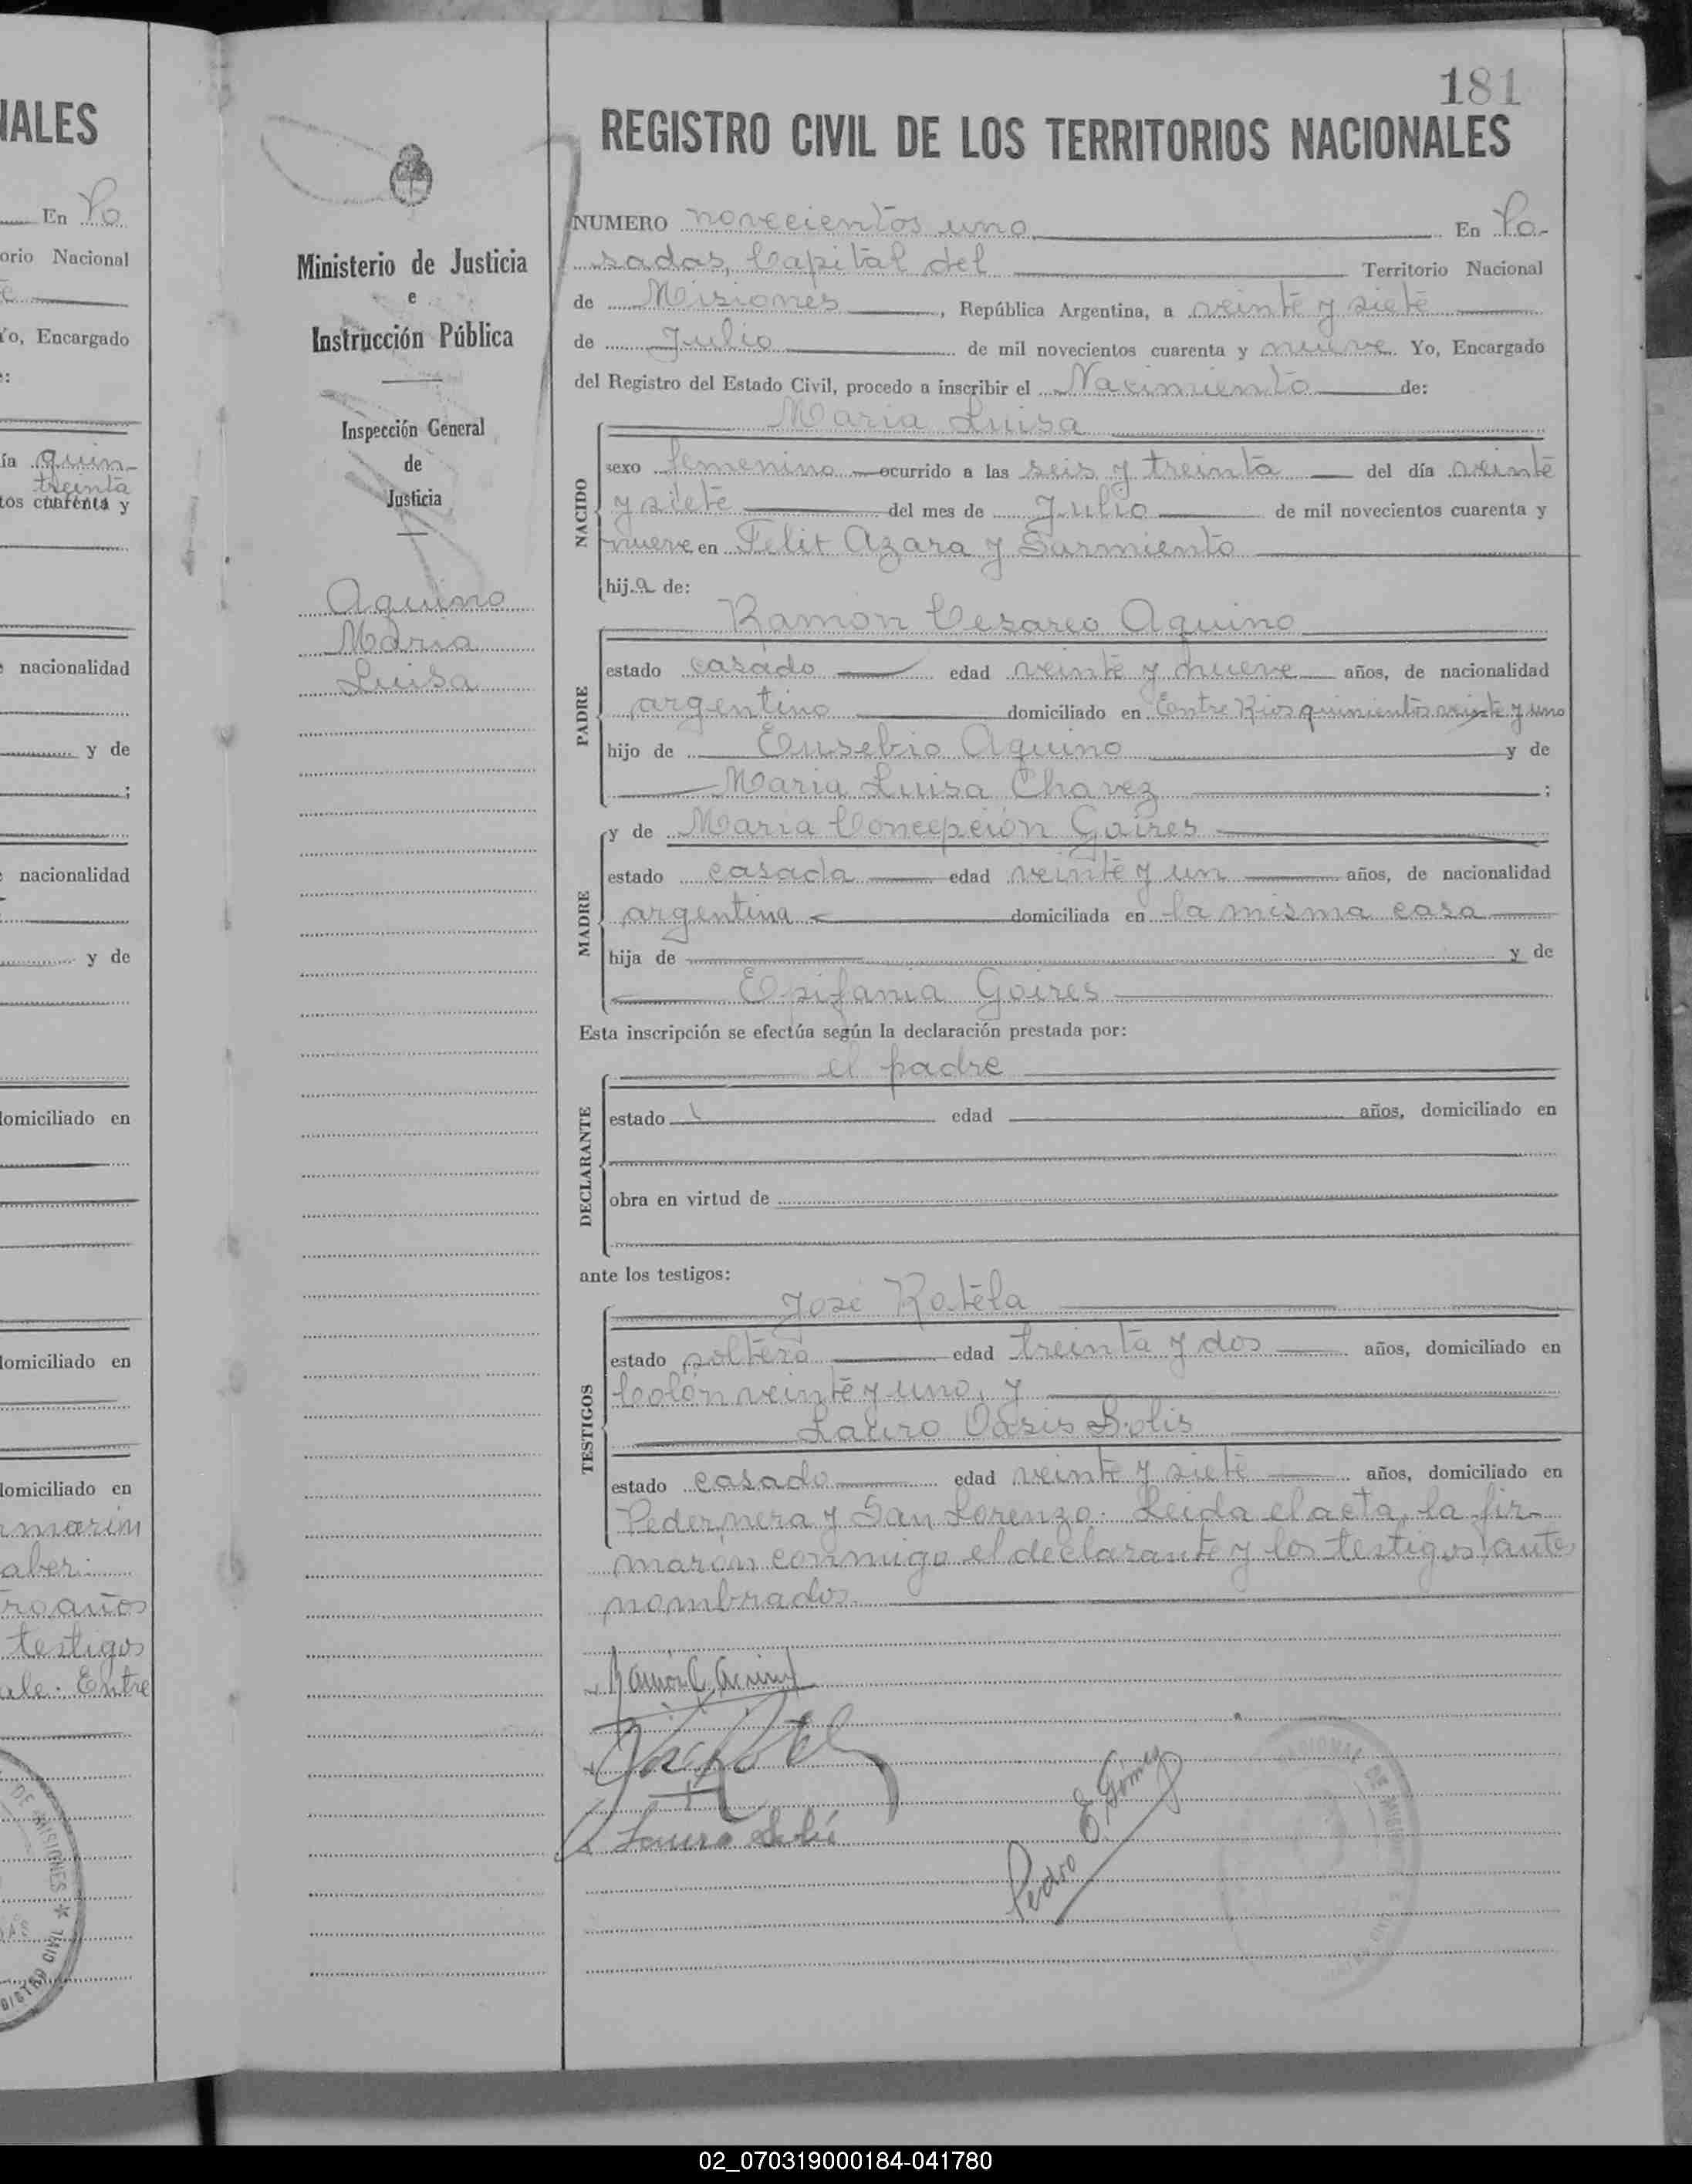 IALES
En Po
orio Nacional
Yo, Encargado
ía quin-
treinta
tos cuarenta y
nacionalidad
y de
;
nacionalidad
y de
domiciliado en
domiciliado en
domiciliado en
aber
testigos
ale. Entre
DE MISIONES
Ministerio de Justicia
e
Instrucción Pública
Inspección General
de
Justicia
Aquino
Maria
Luisa
181
REGISTRO CIVIL DE LOS TERRITORIOS NACIONALES
NUMERO novecientos uno En Po-
sadas, Capital del Territorio Nacional
de Misiones, República Argentina, a veinte y siete
de Julio de mil novecientos cuarenta y nueve Yo, Encargado
del Registro del Estado Civil, procedo a inscribir el Nacimiento de:
Maria Luisa
NACIDO
sexo femenino ocurrido a las seis y treinta del día veinte
y siete del mes de Julio de mil novecientos cuarenta y
nueve en Felix Azara y Sarmiento
hij.a de:
Ramón Cesareo Aquino
PADRE
estado casado edad veinte y nueve años, de nacionalidad
argentino domiciliado en Entre Rios quinientos veinte y uno
hijo de Eusebio Aquino y de
Maria Luisa Chavez ;
MADRE
y de Maria Concepción Goires
estado casada edad veinte y un años, de nacionalidad
argentina domiciliada en la misma casa
hija de y de
Epifania Goires
Esta inscripción se efectúa según la declaración prestada por:
el padre
DECLARANTE
estado edad años, domiciliado en
obra en virtud de
ante los testigos:
José Rotela
TESTIGOS
estado soltero edad treinta y dos años, domiciliado en
Colón veinte y uno, y
Lauro Solis
estado casado edad veinte y siete años, domiciliado en
Pedernera y San Lorenzo. Leida el acta, la fir-
marón conmigo el declarante y los testigos antes
nombrados.
Ramón C. Aquino
José Rotela
Lauro Solis
Pedro E. Gómez
02_070319000184-041780